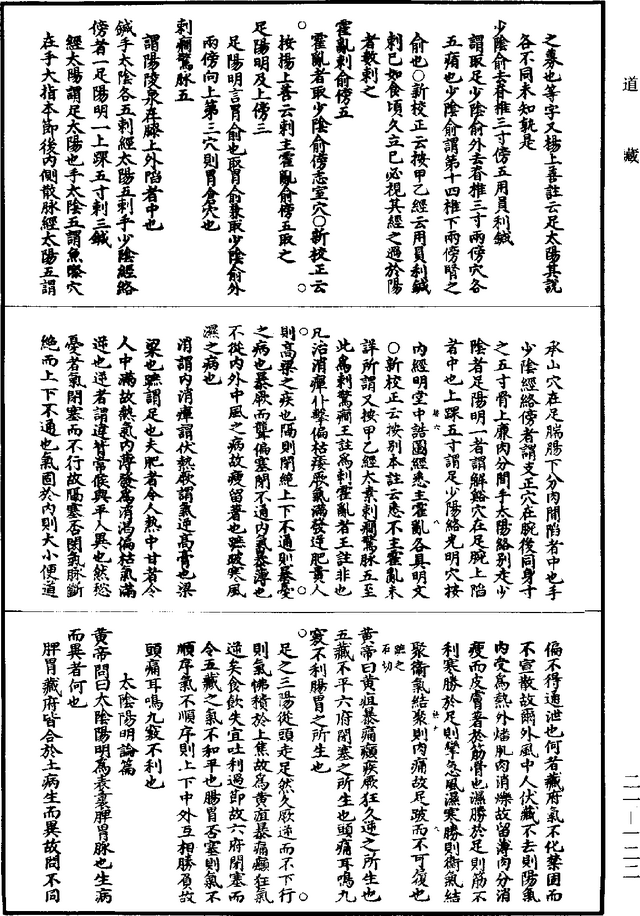 道藏
之募也等字又楊上善註云足太陽其說
各不同未知孰是
少陰俞去脊椎三寸傍五用員利鍼
謂取足少陰俞外去脊椎三寸兩傍穴各
五痏也少陰俞謂第十四椎下兩傍腎之
俞也○新校正云按甲乙經云用員利鍼
刺已如食頃久立已必視其經之過於陽
者數刺之
霍亂刺俞傍五
霍亂者取少陰俞傍志室穴○新校正云
按揚上善云刺主霍亂俞傍五取之
足陽明及上傍三
足陽明言胃俞也取胃俞兼取少陰俞外
兩傍向上第三穴則胃倉穴也
刺癇驚脉五
謂陽陵泉在膝上外陷者中也
鍼手太陰各五刺經太陽五刺手少陰經絡
傍者一足陽明一上踝五寸刺三鍼
經太陽謂足太陽也手太陰五謂魚際穴
在手大指本節後內側散脉經太陽五謂
承山穴在足腨腸下分肉間陷者中也手
少陰經絡傍者謂支正穴在腕後同身寸
之五寸骨上廉肉分間手太陽絡別走少
陰者足陽明一者謂解谿穴在足腕上陷
者中也上踝五寸謂足少陽絡光明穴按
內經明堂中誥圖經悉主霍亂各具明文
○新校正云按別本註云悉不主霍亂未
詳所謂又按甲乙經大素刺癇驚脉五至
此爲刺驚癇王註爲刺霍亂者王註非也
凡治消癉仆擊偏枯痿厥氣滿發逆肥貴人
則高粱之疾也隔則閉絕上下不通則暴憂
之病也暴厥而聾偏塞閉不通內氣暴薄也
不從內外中風之病故瘦留著也蹠跛寒風
濕之病也
消謂內消癉謂伏熱厥謂氣逆高膏也粱
粱也蹠謂足也夫肥者令人熱中甘者令
人中滿故熱氣內薄發爲消渴偏枯氣滿
逆也逆者謂違背常候與平人異也然愁
憂者氣閉塞而不行故隔塞否閉氣脉斷
絕而上下不通也氣固於內則大小便道
偏不得通泄也何者藏府氣不化禁固而
不宣散故爾外風中人伏藏不去則陽氣
內受爲熱外燔肌肉消爍故留薄肉分消
瘦而皮膚著於筋骨也濕勝於足則筋不
利寒勝於足則攣急風濕寒勝則衛氣結
聚衛氣結聚則肉痛故足跛而不可履也
蹠之石切
黃帝曰黃疸暴痛癲疾厥狂久逆之所生也
五藏不平六府閉塞之所生也頭痛耳鳴九
竅不利腸胃之所生也
足之三陽從頭走足然久厥逆而不下行
則氣怫積於上焦故爲黃疸暴痛癲狂氣
逆矣食飲失宜吐利過節故六府閉塞而
令五藏之氣不和平也腸胃否塞則氣不
順序氣不順序則上下中外互相勝負故
頭痛耳鳴九竅不利也
太陰陽明論篇
黃帝問曰大陰陽明爲表裏脾胃脉也生病
而異者何也
脾胃藏府皆合於土病生而異故問不同
二一－一二二